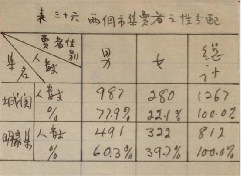 表三十六 兩個市集賣者之性分配
賣者性別
人數
集名
男 女 總計
人數 987 280 1267
% 77.9% 22.1% 100.0%
明家集 人數 491 322 812
% 60.3% 39.7% 100.0%